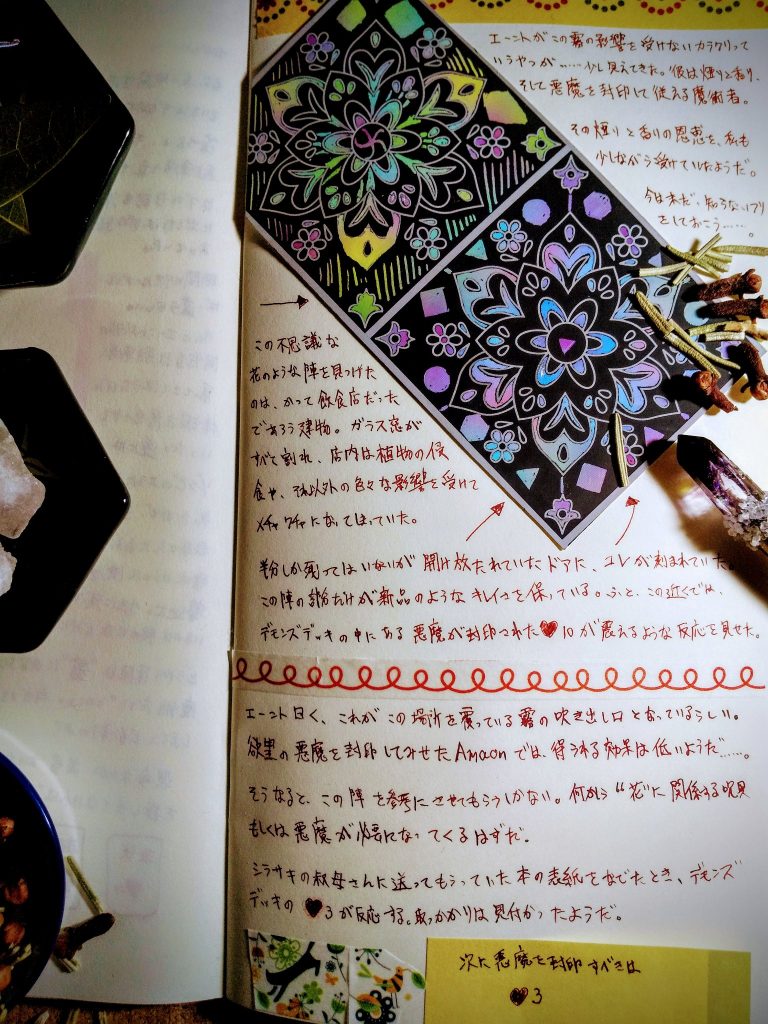 エーントがこの霧の影響を受けないカラクリって
いうやつが……少し見えてきた。彼は煙りと香り、
そして悪魔を封印して使える魔術者。
その煙りと香りの恩恵を、私も
少しながら受けていたようだ。
今は未だ、知らないフリ
をしておこう……。
この不思議な
花のような陣を見つけた
のは、かつて飲食店だった
であろう建物。ガラス窓が
すべて割れ、店内は植物の侵
食や、それ以外の色々な影響を受けて
メチャクチャになってしまっていた。
半分しか残ってはいないが開け放たれていたドアに、コレが刻まれていた。
この陣の部分だけが新品のようなキレイさを保っている。ふと、この近くでは、
デモンズデッキの中にある悪魔が封印された♥10が震えるような反応を見せた。
エーント曰く、これがこの場所を覆っている霧の吹き出し口となっているらしい。
欲望の悪魔を封印してみせたAmaonでは、得られる効果は低いようだ……。
そうなると、この陣を参考にさせてもらうしかない。何かしら“花”に関係する呪具
もしくは悪魔が必要になってくるはずだ。
シラサキの叔母さんに送ってもらっていた本の表紙をなでたとき、デモンズ
デッキの♥3が反応する。取っかかりは見付かったようだ。
次に悪魔を封印すべきは
♥3